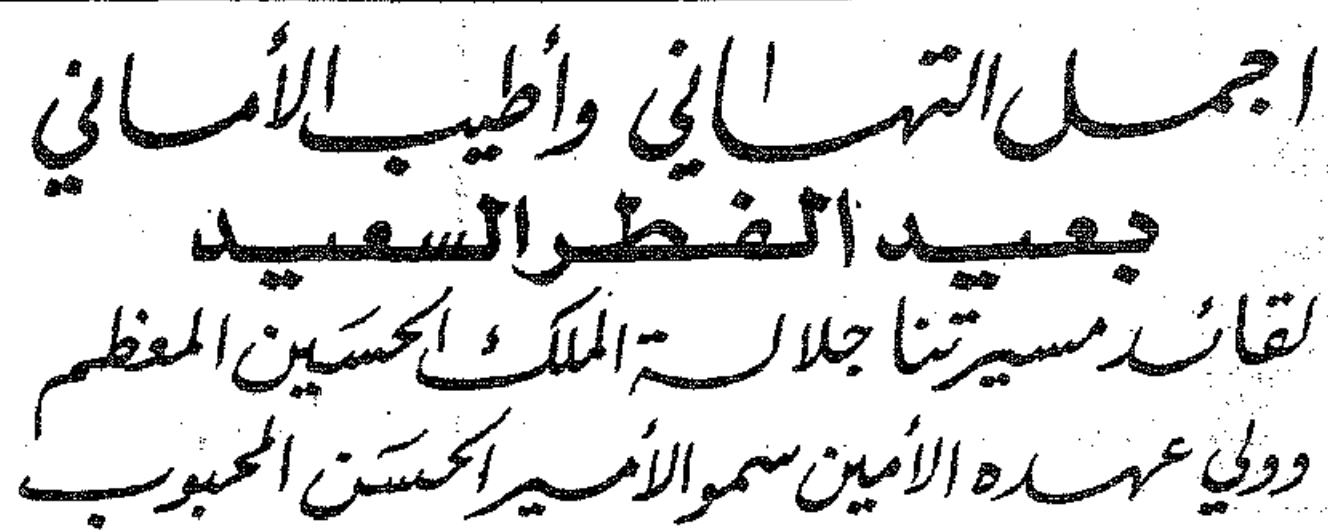 اجمل التهاني وأطيب الأماني
بعيد الفطر السعيد
لقائد مسيرتنا جلالة الملك الحسين المعظم
وولي عهده الأمين سمو الأمير الحسن المحبوب